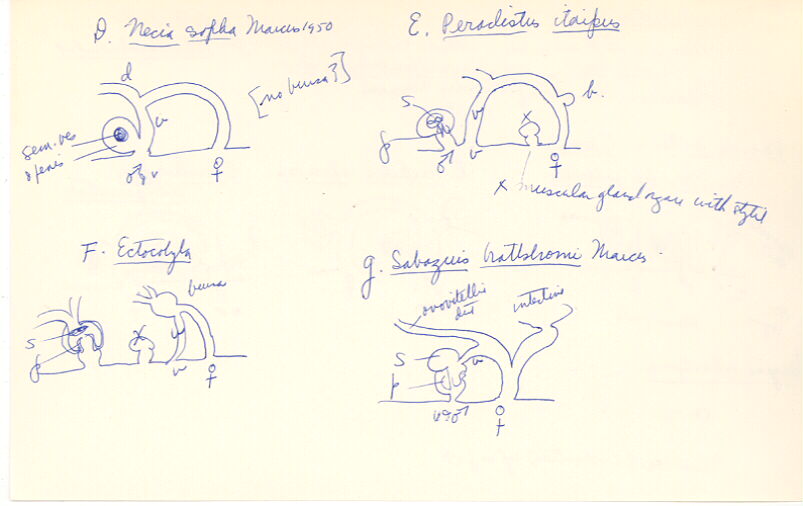 D. Necia sopha Marcus 1950
d
[no bursa?]
v
sem. ves
penis
♂ v
♀
E. Peraclistus itaipus
s
p
v
x
b.
♂
v
♀
x muscular gland organ with stylet
F. Ectocotyla
bursa
x
v
s
p
v
♀
G. Sabazius Marcus
ovovitellin
duct
intestine
s
v
p
v ♂
♀